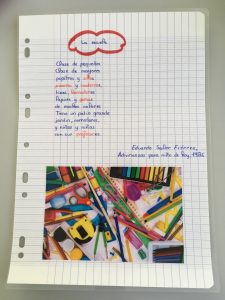 La escuela
Clase de pequeños
Clase de mayores
pupitres y sillas
pizarras y cuadernos,
tizas, borradores
Papeles y gomas
de muchos colores
Tiene un patio grande
jardín, corredores,
y niños y niñas
con sus profesores.
Eduardo Soler
Adivinanzas para niños de hoy, 1986